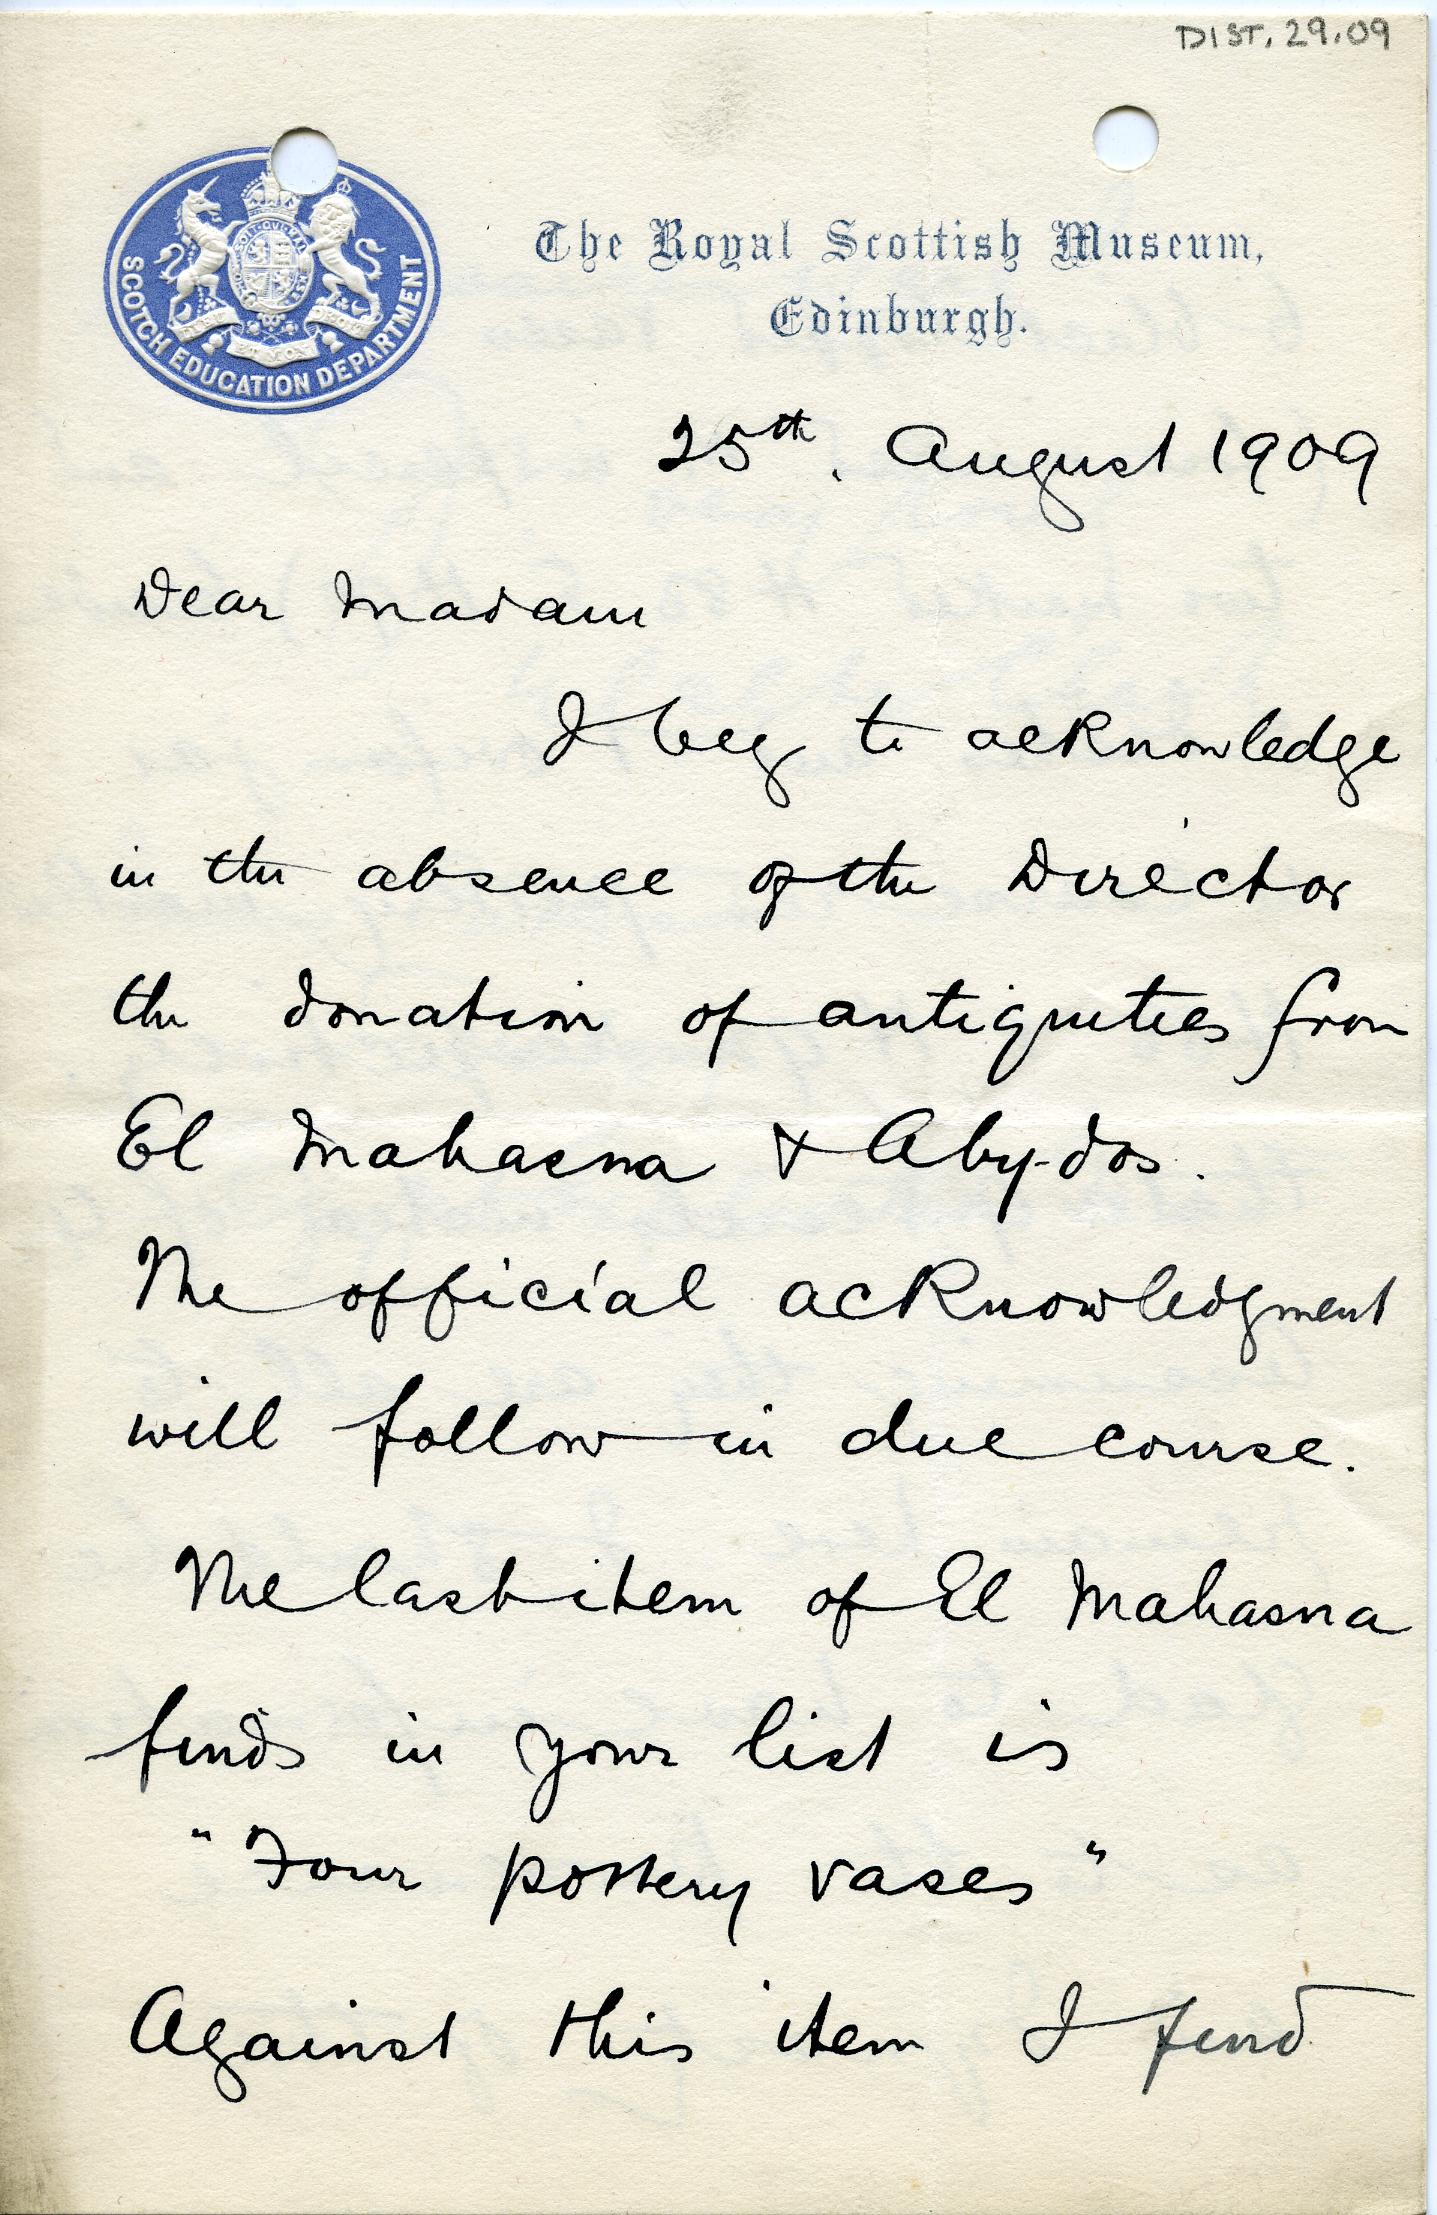 DIST. 29.09
SCOTCH EDUCATION DEPARTMENT
The Royal Scottish Museum,
Edinburgh.
25th. August 1909
Dear Madam
I beg to acknowledge
in the absence of the Director
the donation of antiquities from
El Mahasna & Abydos.
The official acknowledgment
will follow in due course.
The last item of El Mahasna
finds in your list is
"Four pottery vases"
Against this item I find